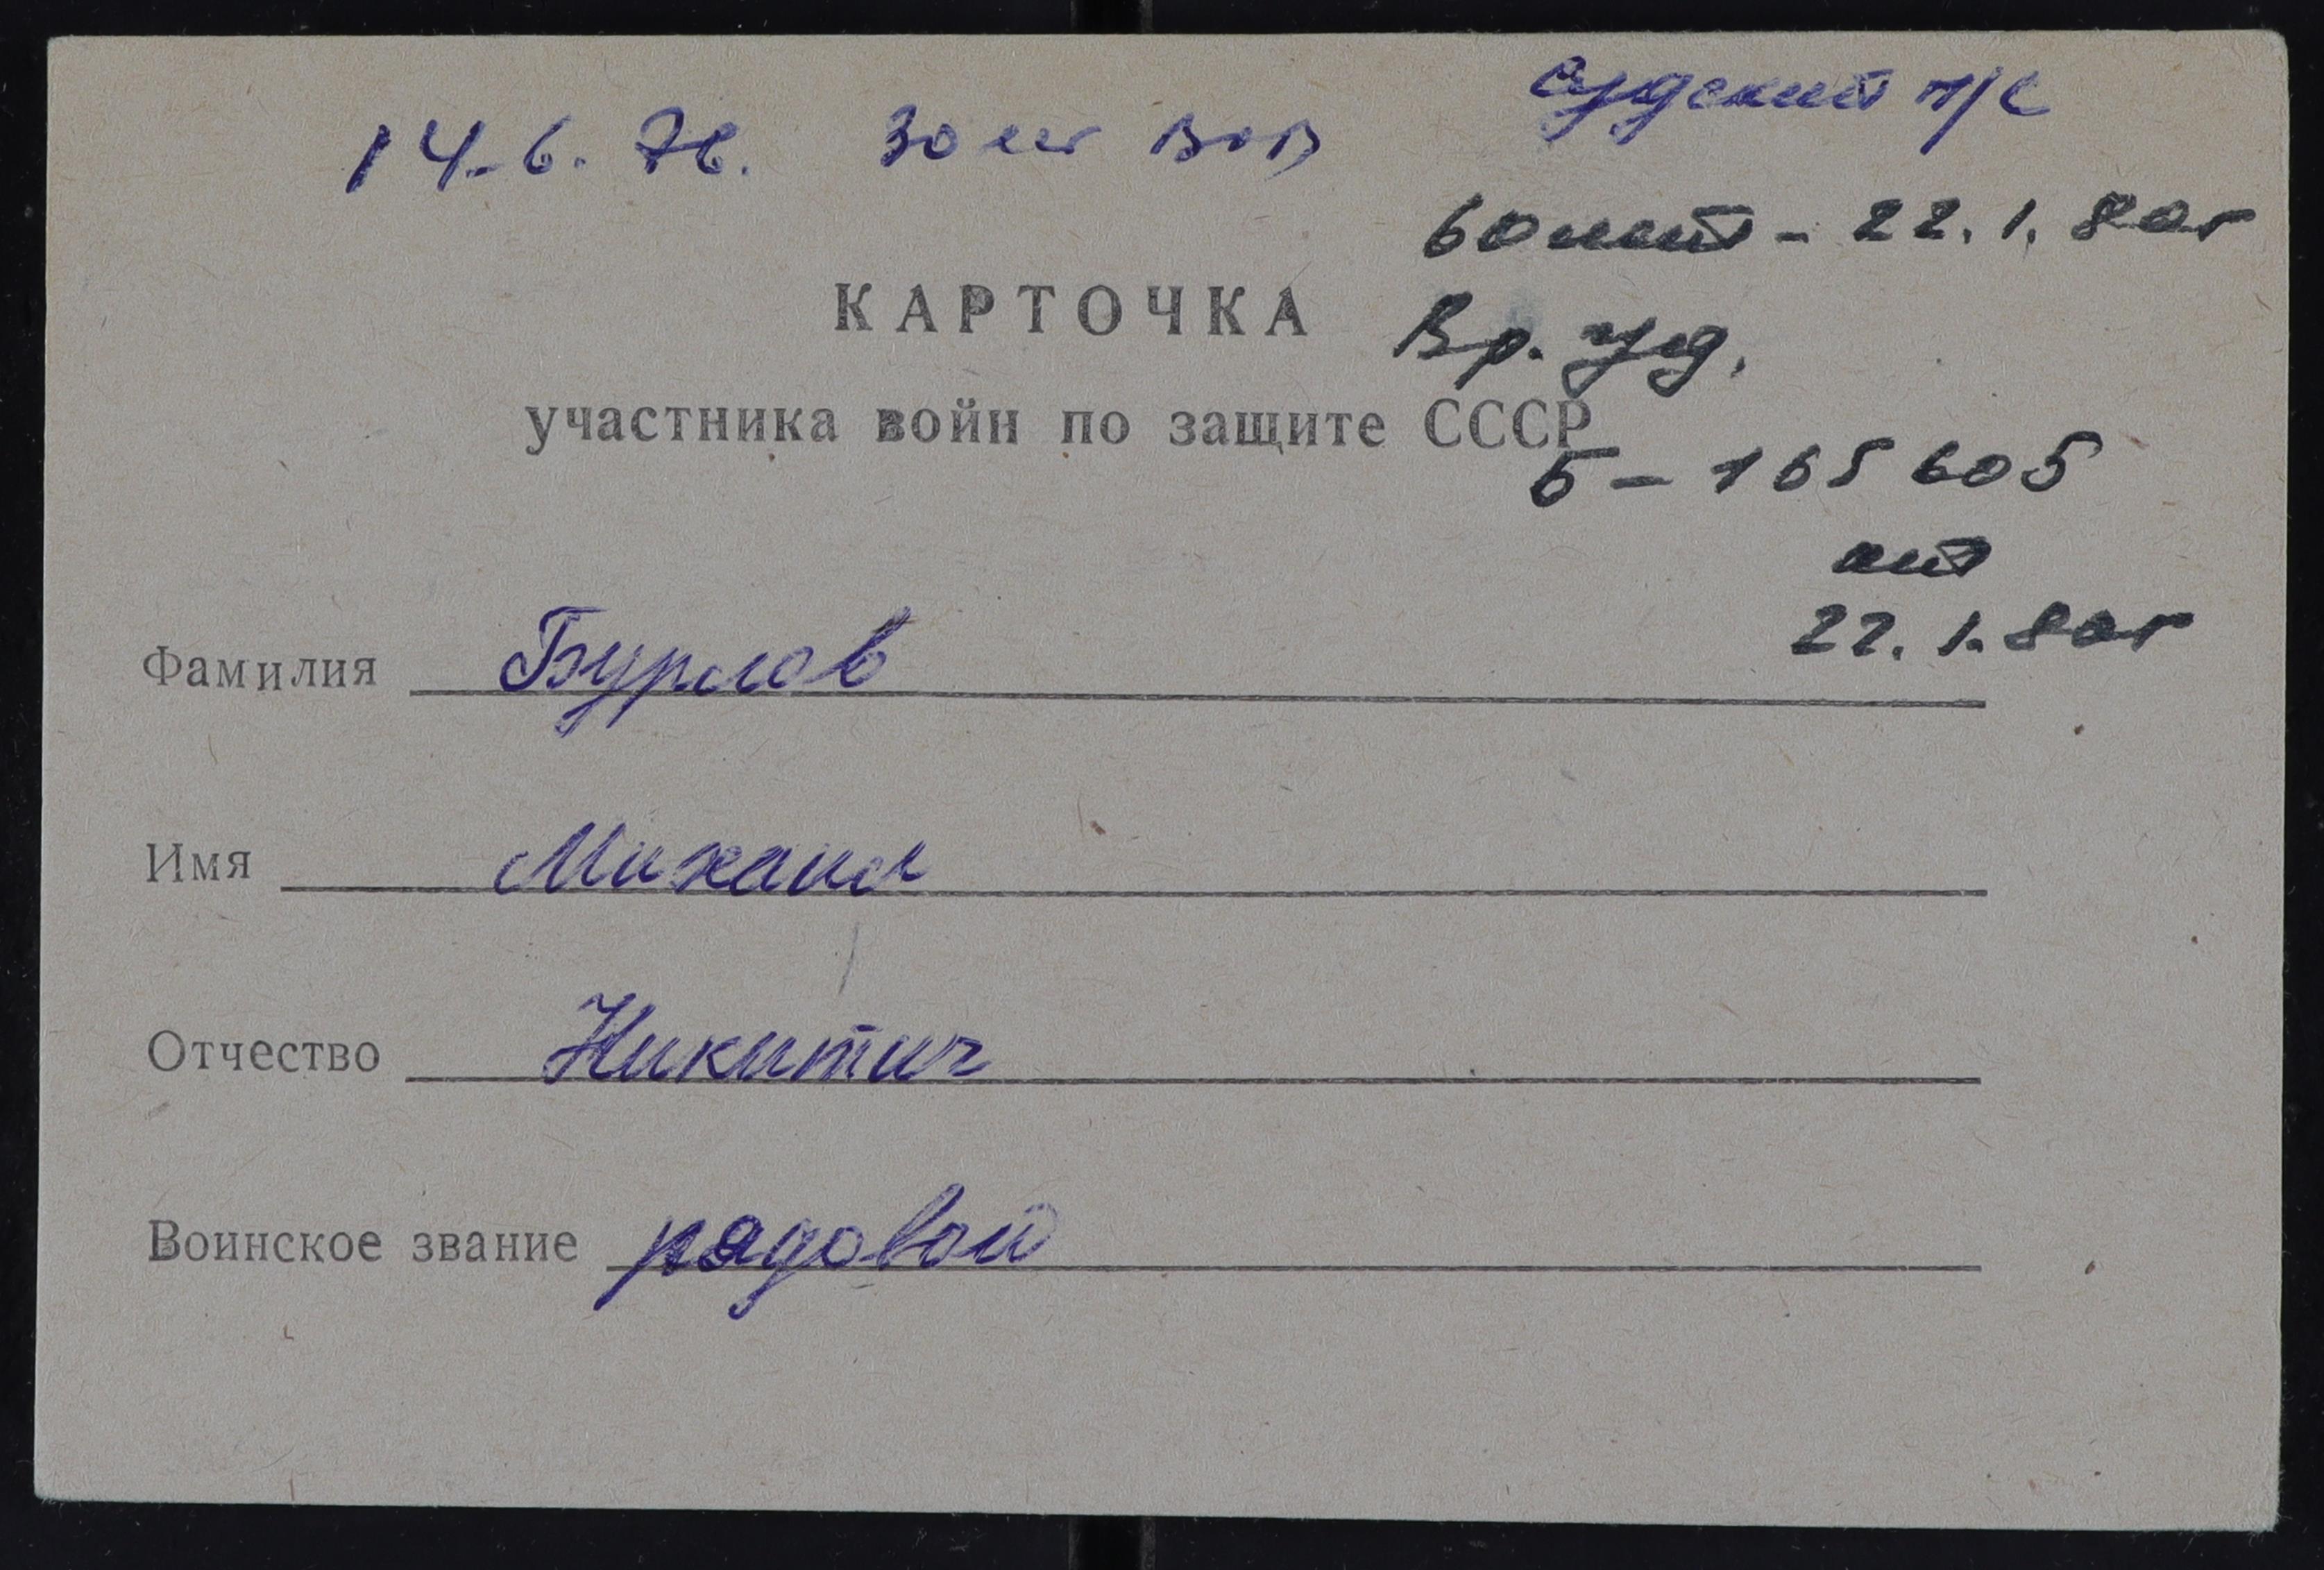 Судский п/с
14.6.76. 30 лет ВОВ
60 лет - 22.1.80г
КАРТОЧКА
Вр. уд.
участника войн по защите СССР
Б - 165605
от
22.1.80г
Фамилия Бурлов
Имя Михаил
Отчество Никитич
Воинское звание рядовой